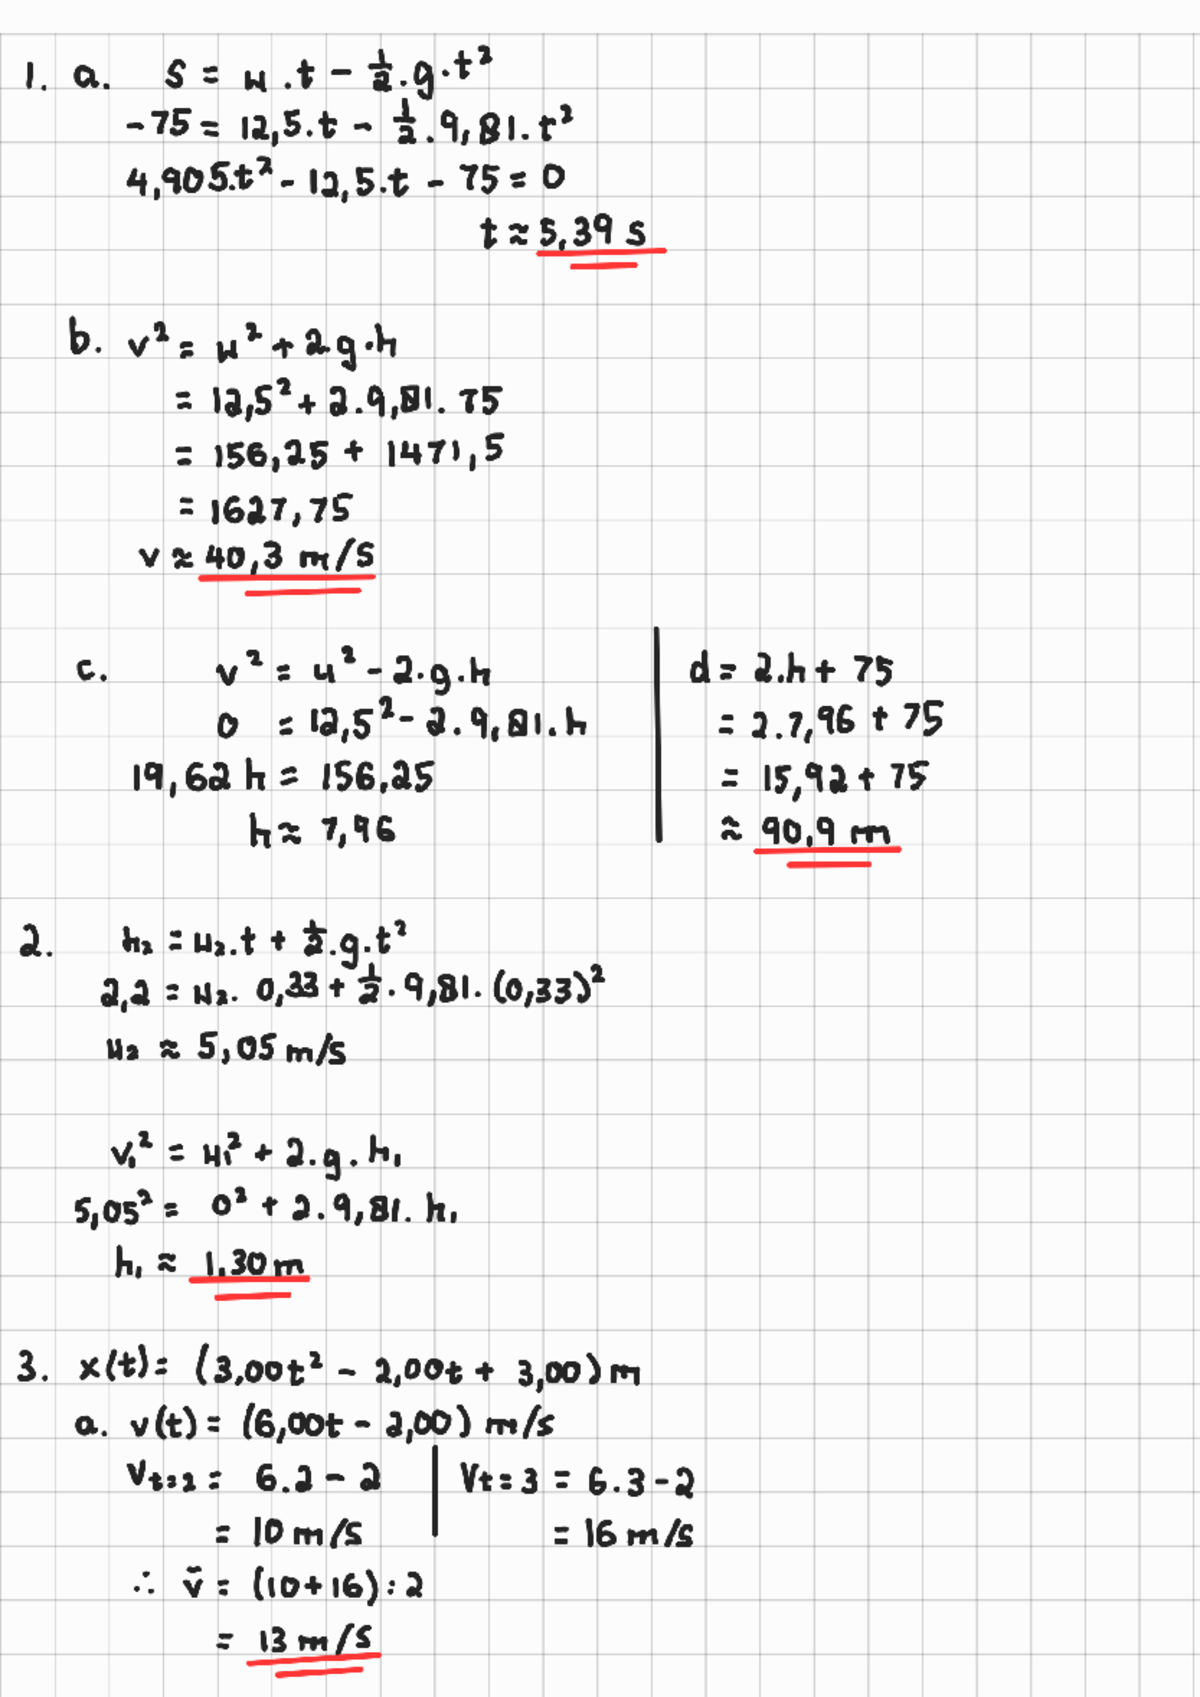 1. a. s = u.t - ½.g.t²
-75 = 12,5.t - ½.9,81.t²
4,905.t² - 12,5.t - 75 = 0
t ≈ 5,39 s
b. v² = u² + 2.g.h
= 12,5² + 2.9,81.75
= 156,25 + 1471,5
= 1627,75
v ≈ 40,3 m/s
c. v² = u² - 2.g.h
0 = 12,5² - 2.9,81.h
19,62 h = 156,25
h ≈ 7,96
d = 2.h + 75
= 2.7,96 + 75
= 15,92 + 75
≈ 90,9 m
2. h₂ = u₂.t + ½.g.t²
2,2 = u₂. 0,33 + ½.9,81.(0,33)²
u₂ ≈ 5,05 m/s
v₁² = u₁² + 2.g.h₁
5,05² = 0² + 2.9,81.h₁
h₁ ≈ 1,30 m
3. x(t) = (3,00t² - 2,00t + 3,00) m
a. v(t) = (6,00t - 2,00) m/s
Vt=2 = 6.2 - 2
= 10 m/s
Vt=3 = 6.3 - 2
= 16 m/s
∴ v̄ = (10+16):2
= 13 m/s